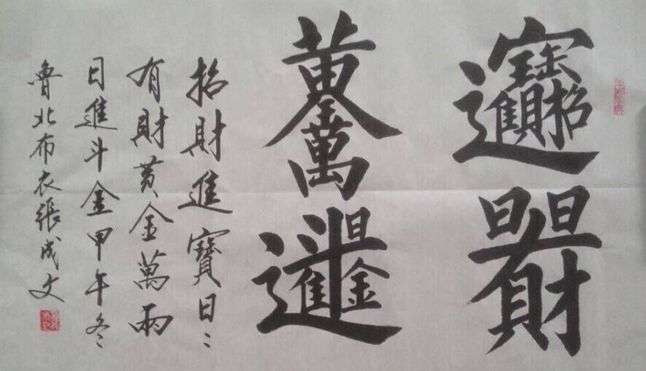 招財進寶日日有財
黃金萬兩日進斗金
招財進寶日〻
有財黄金萬兩
日進斗金甲午冬
魯北布衣張成文